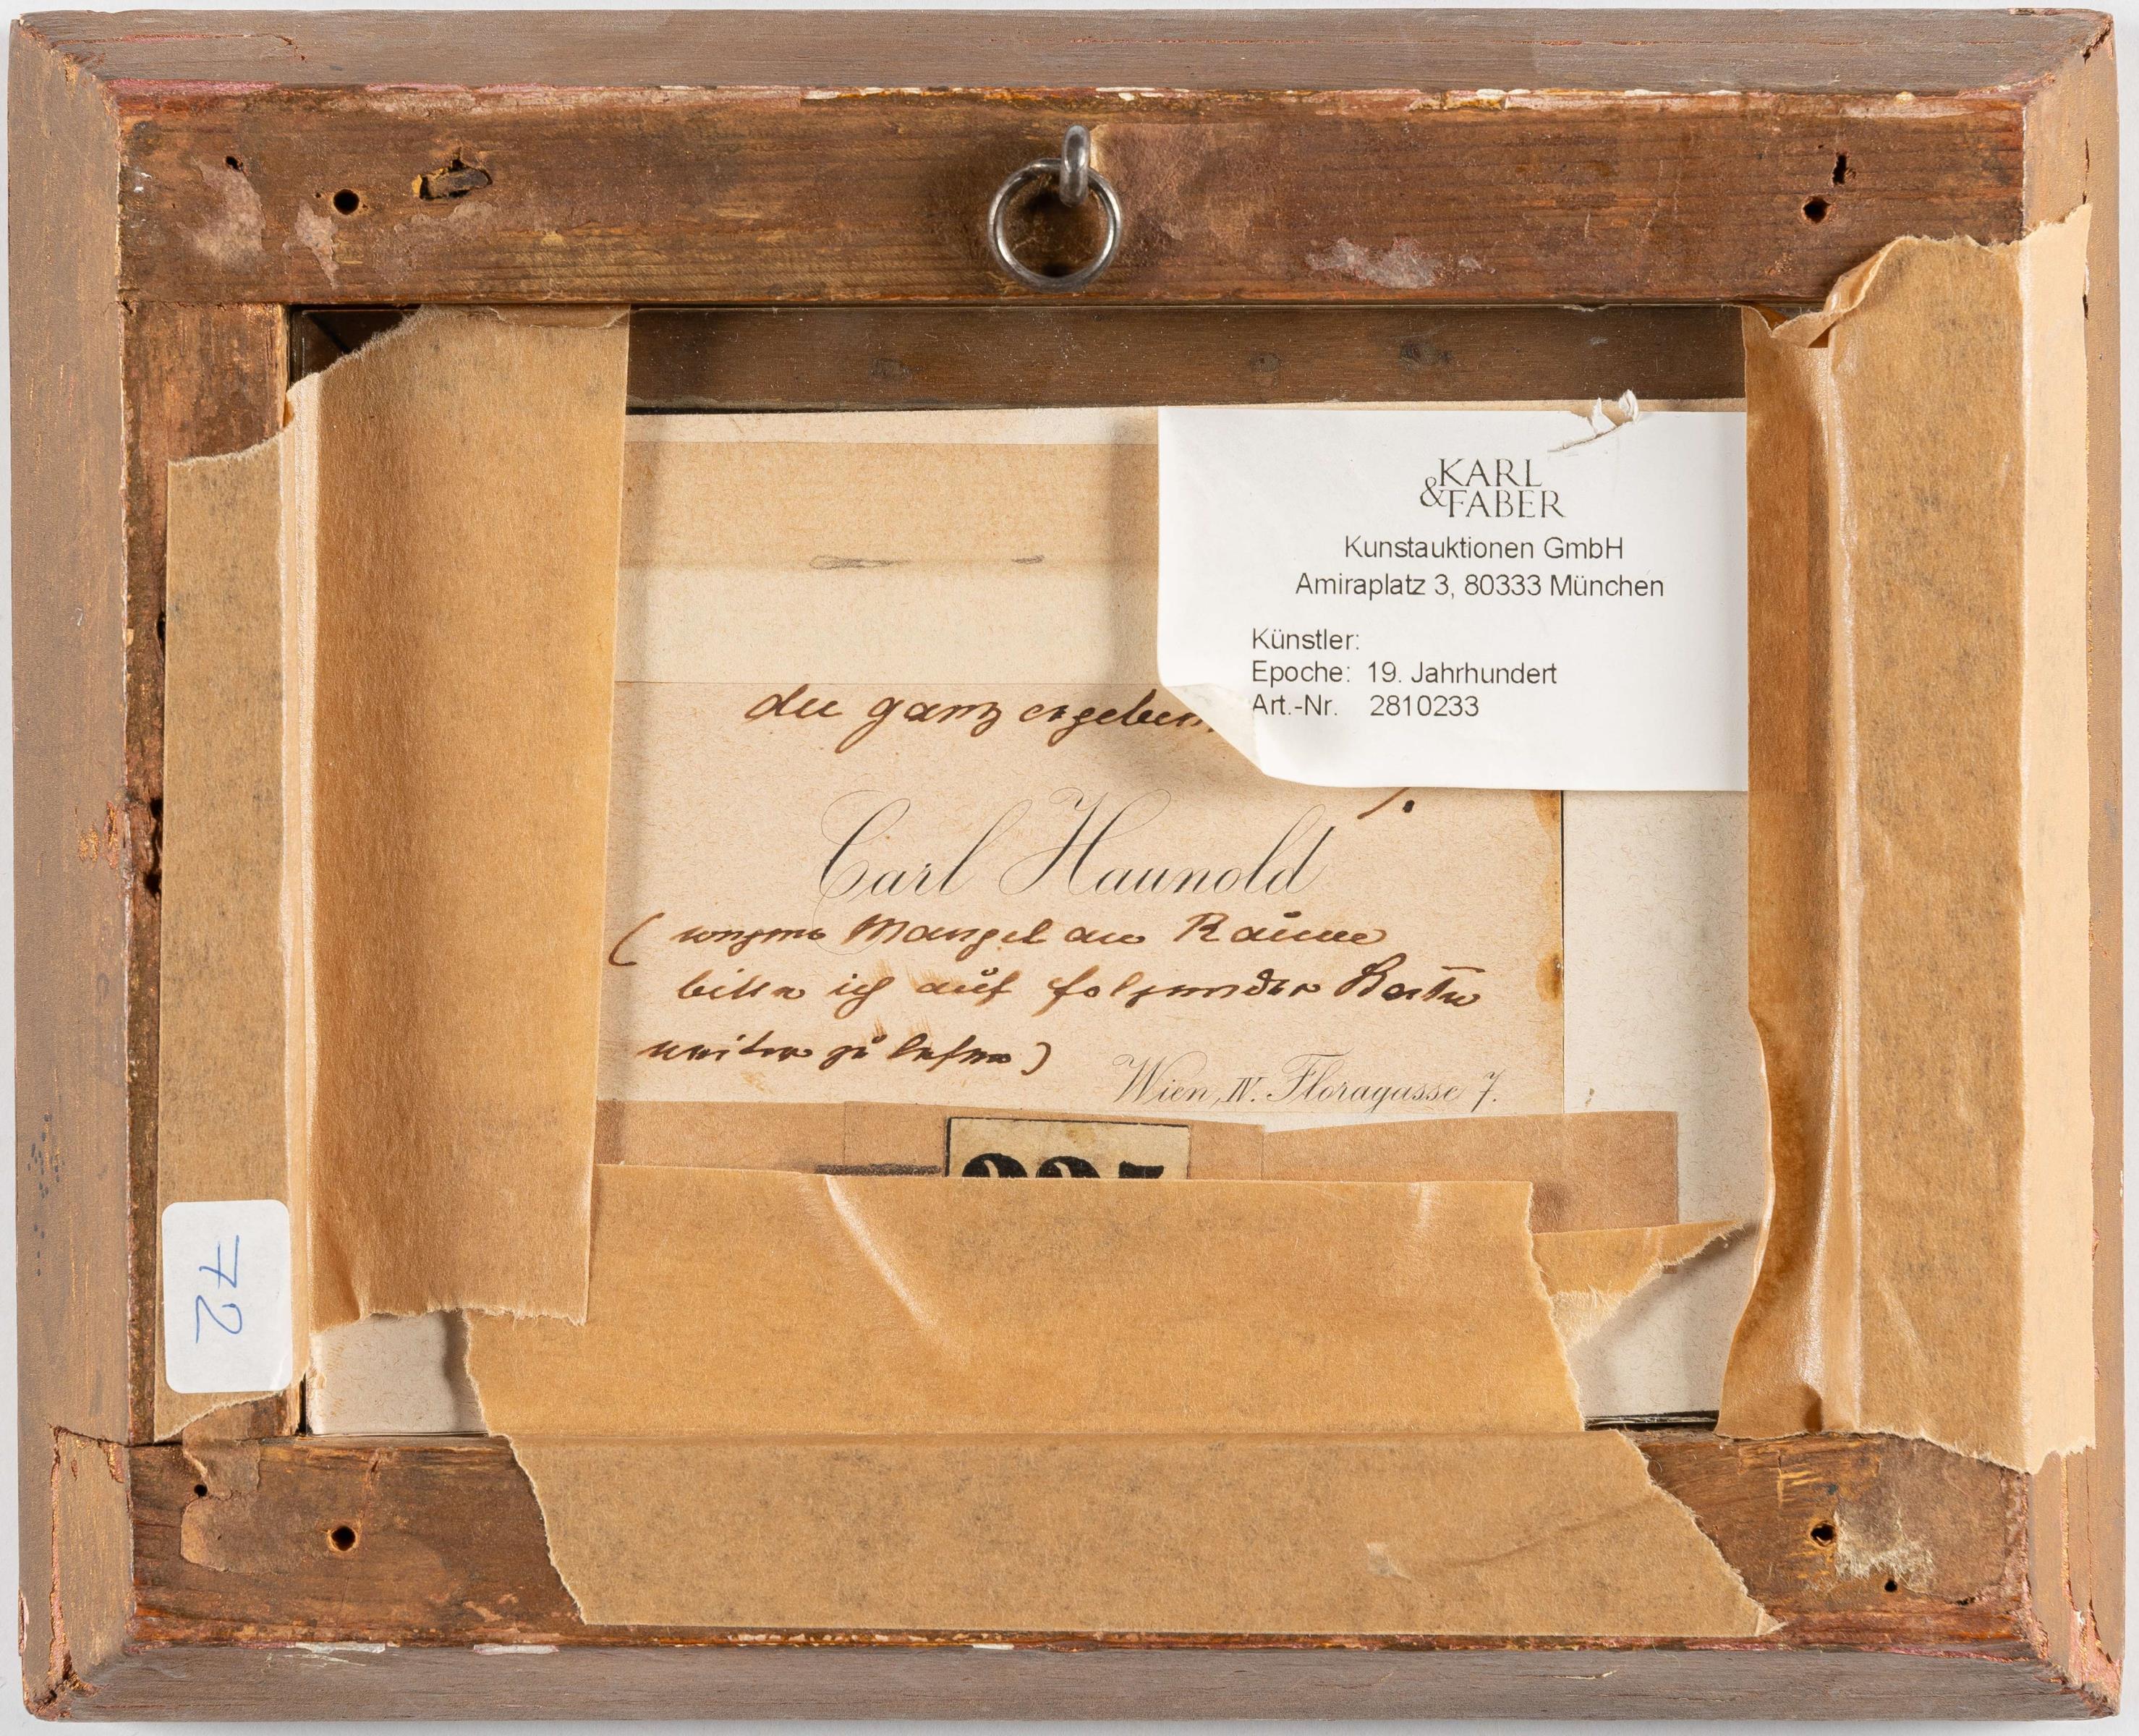 KARL
&FABER
Kunstauktionen GmbH
Amiraplatz 3, 80333 München
Künstler:
Epoche: 19. Jahrhundert
Art.-Nr. 2810233
der ganz ergeben
Carl Haunold
(wegen Mangel an Raume
bitte ich auf folgender Karte
weiter zu lesen)
Wien, IV. Floragasse 7.
72